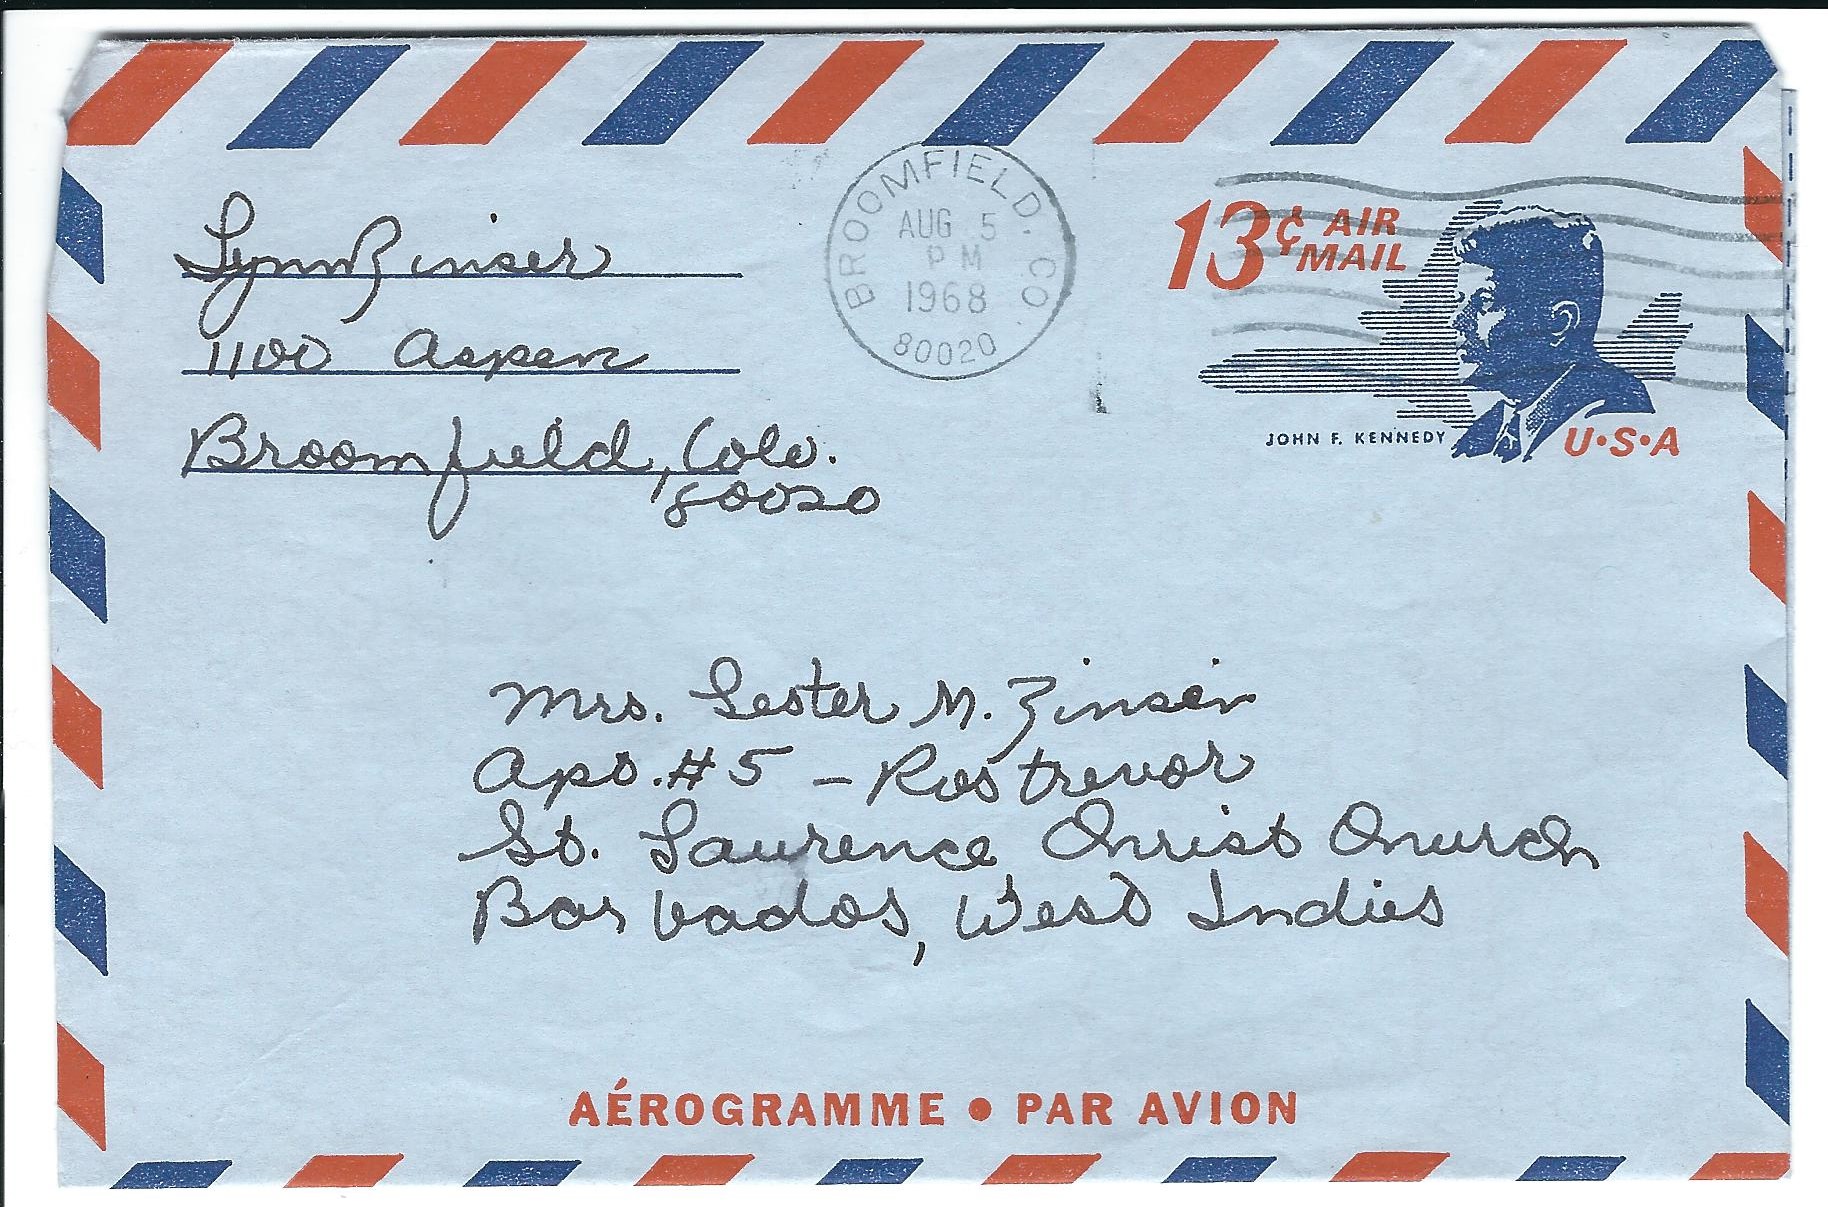 Lynn Zinser
1100 Aspen
Broomfield, Colo.
80020
BROOMFIELD, CO.
AUG 5
PM
1968
80020
13¢ AIR MAIL
JOHN F. KENNEDY
U·S·A
Mrs. Lester M. Zinser
Apt. #5 - Rostrevor
St. Laurence Christ Church
Barbados, West Indies
AÉROGRAMME • PAR AVION